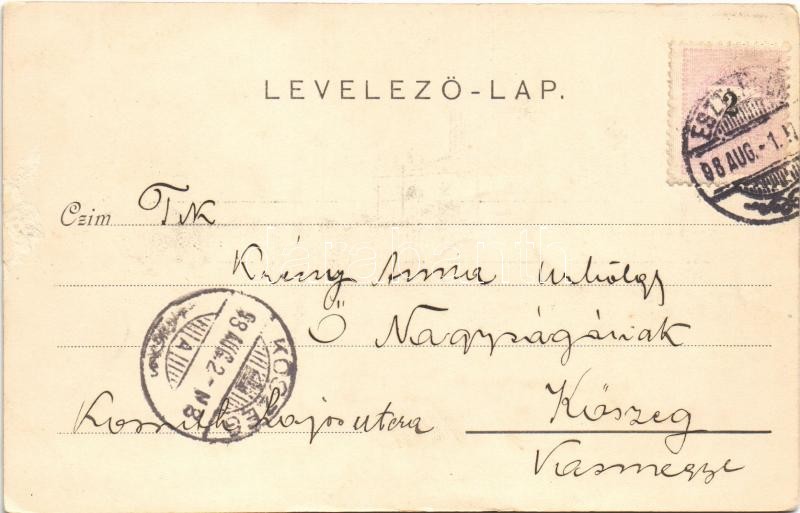 LEVELEZŐ-LAP.
2
98 AUG. - 1.
Czim Tek
Anna Úrhölgy
Ő Nagyságának
Kőszeg
Kossuth Lajos utcza
Vasmegye
KŐSZEG
98 AUG. 2 - N 8
A